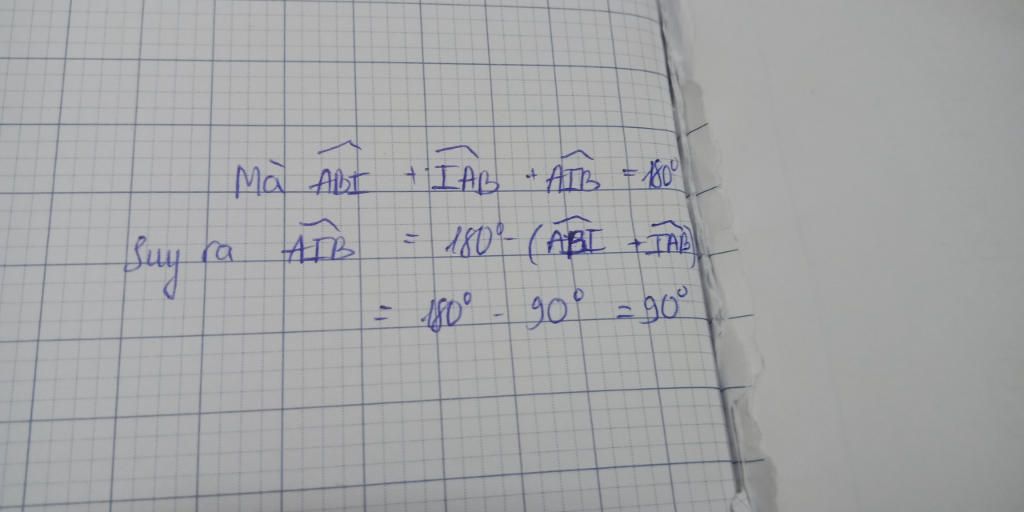 Mà \widehat{ABI} + \widehat{IAB} + \widehat{AIB} = 180°
Suy ra \widehat{AIB} = 180° - (\widehat{ABI} + \widehat{IAB})
= 180° - 90° = 90°